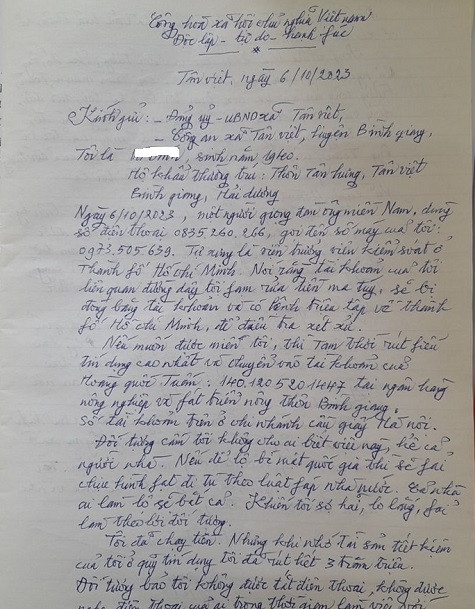 Cộng hoà xã hội chủ nghĩa Việt nam
Độc lập - tự do - hạnh fúc
Tân việt, ngày 6/10/2023
Kính gửi: - Đảng uỷ - UBND xã Tân việt,
- Công an xã Tân việt, huyện Bình giang,
Tôi là , sinh năm 1960.
Hộ khẩu thường trú: Thôn Tân hưng, Tân việt
Bình giang, Hải dương
Ngày 6/10/2023, một người giọng đàn ông miền Nam, dùng
số điện thoại 0835.260.266, gọi đến số máy của tôi:
0973.505.639. Tự xưng là viện trưởng viện kiểm soát ở
Thành fố Hồ chí Minh. Nói rằng tài khoản của tôi
liên quan đường dây tội fạm rửa tiền ma tuý, sẽ bị
đóng băng tài khoản và có lệnh triệu tập về thành
fố Hồ chí Minh, để điều tra xét xử.
Nếu muốn được miễn tội, thì Tạm thời rút fiếu
tín dụng cao nhất và chuyển vào tài khoản của
Hoàng quốc Tuấn: 140.120.520.1447 tại ngân hàng
nông nghiệp và fát triển nông thôn Bình giang.
Số tài khoản trên ở chi nhánh cầu giấy Hà nội.
Đối tượng cấm tôi không cho ai biết việc này, kể cả
người nhà. Nếu để lộ bí mật quốc gia thì sẽ fải
chịu hình fạt đi tù theo luật fáp nhà nước. Cả nhà
ai làm lộ sẽ bắt cả. Khiến tôi sợ hãi, lo lắng, fải
làm theo lời đối tượng.
Tôi đã chạy tiền. Nhưng khi nhớ tài sản tiết kiệm
của tôi ở quỹ tín dụng tôi đã rút hết 3 trăm triệu.
Đối tượng bảo tôi không được tắt điện thoại, không được
nghe điện thoại của ai trong thời gian làm